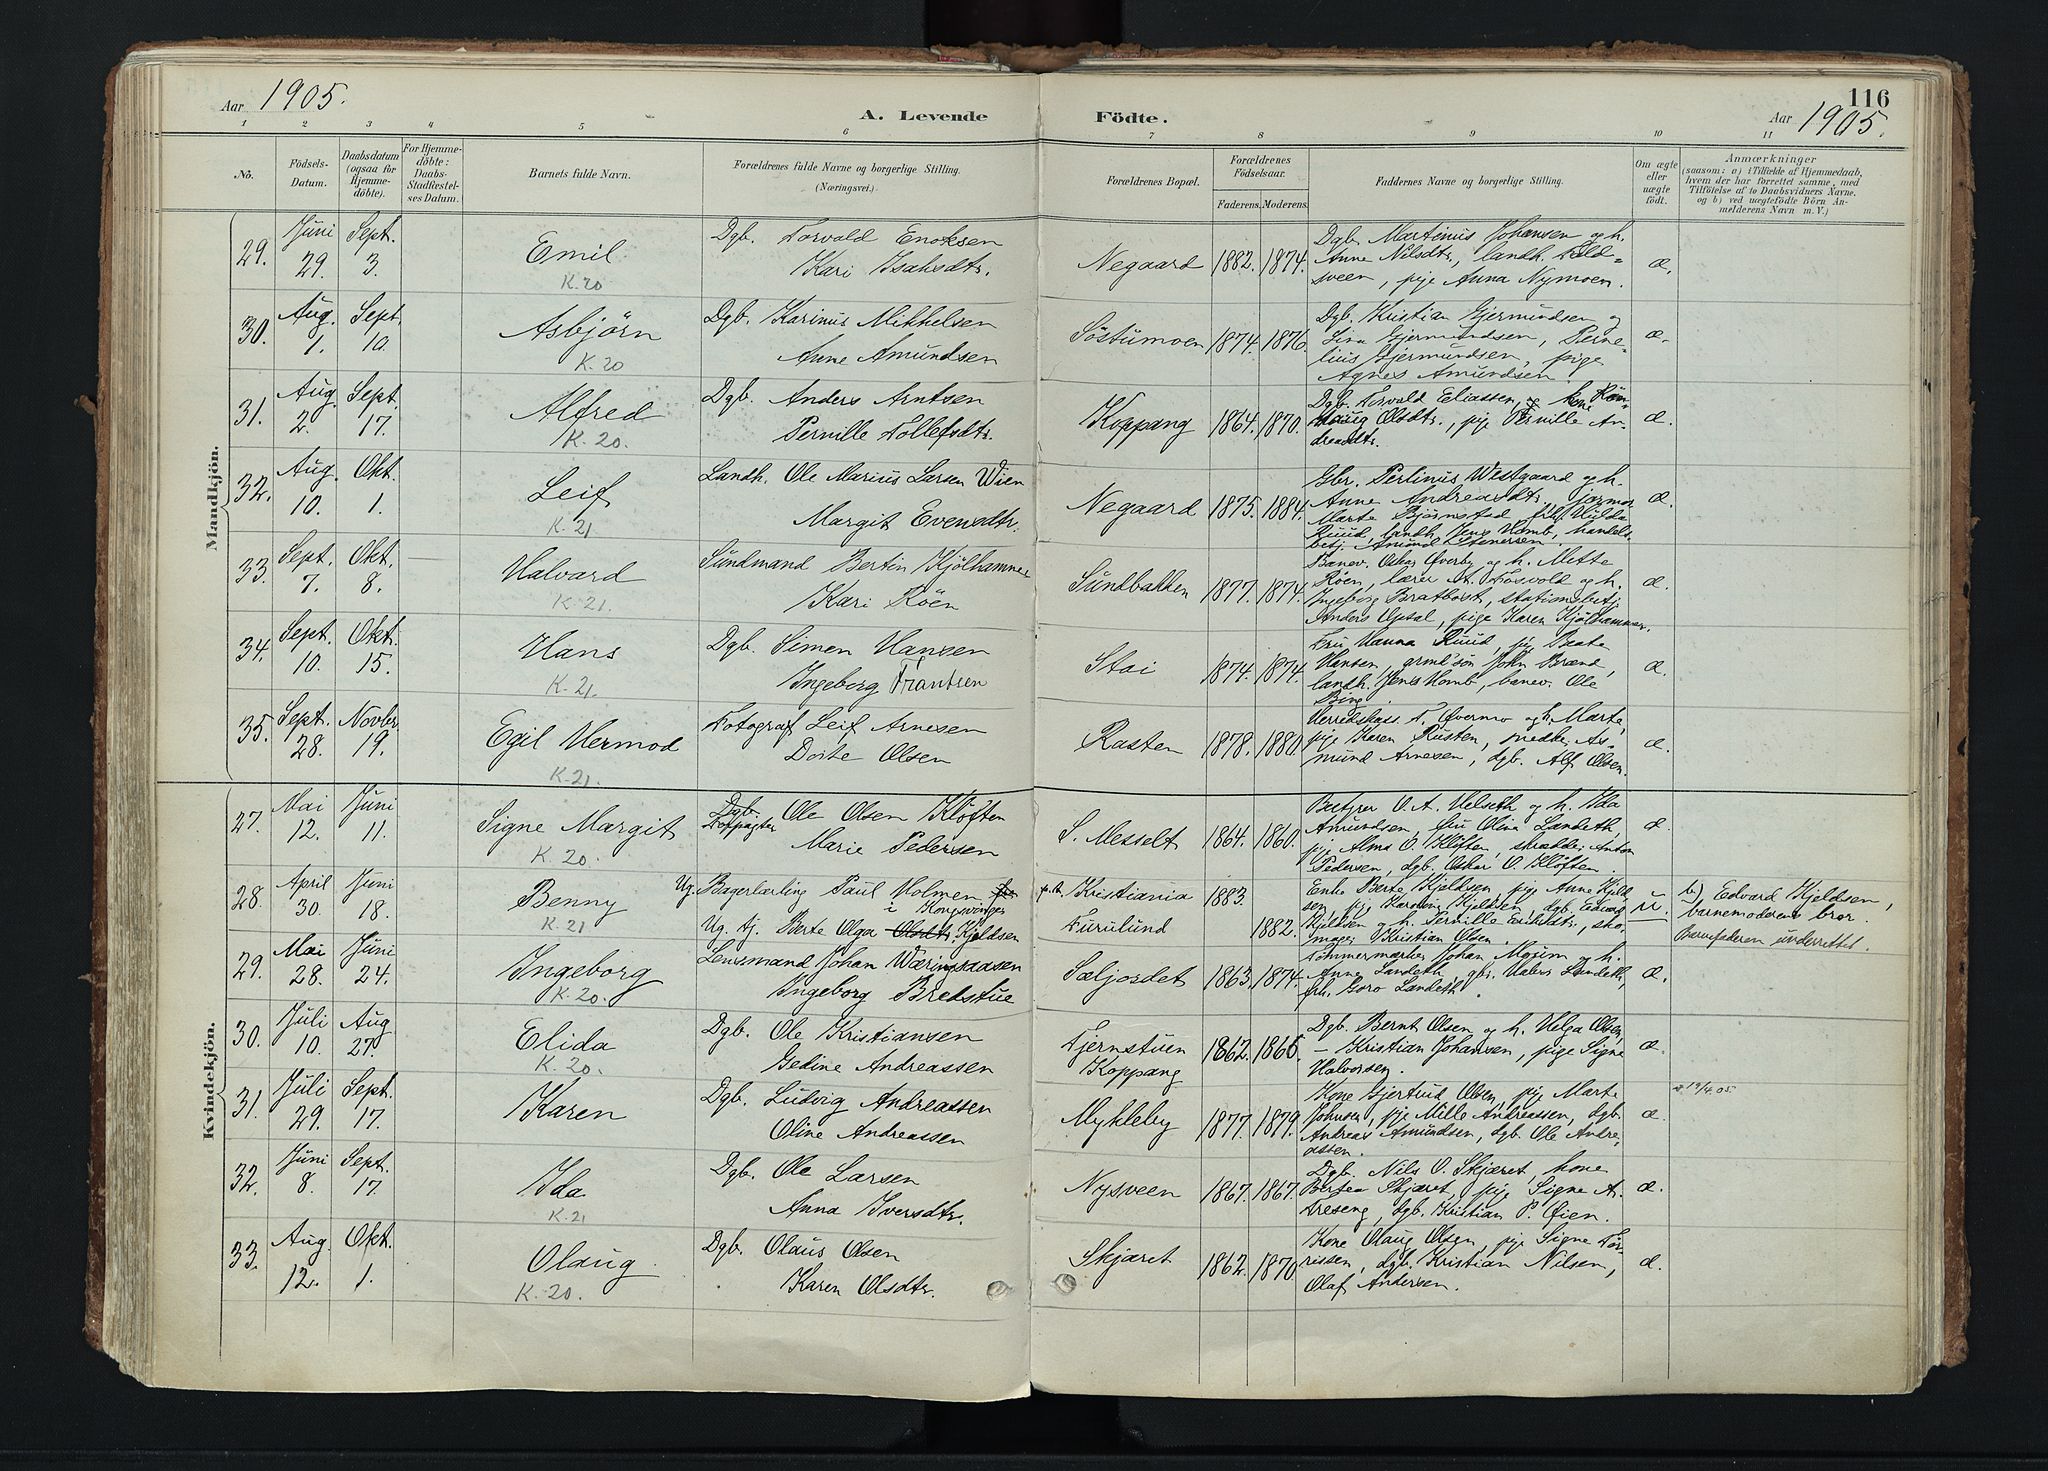 Aar 1905.
A. Levende Födte.
116
Aar 1905.
1 2 3 4 5 6 7 8 9 10 11
No.
Födsels-Datum.
Daabsdatum (ogsaa for Hjemme-döbte).
For Hjemme-döbte: Daabs-Stadfæstel-ses Datum.
Barnets fulde Navn.
Forældrenes fulde Navne og borgerlige Stilling. (Næringsvei.)
Forældrenes Bopæl.
Forældrenes Födselsaar.
Faderens. Moderens.
Faddernes Navne og borgerlige Stilling.
Om ægte eller uægte födt.
Anmærkninger
(saasom: a) i Tilfælde af Hjemmedaab, hvem der har forrettet samme, med Tilföielse af to Daabsvidners Navne. og b) ved uægtefödte Börn Anmelderens Navn m. V.)
Mandkjön.
29. Juni 29. Sept. 3. Emil K. 20
Dgb. Torvald Enoksen
Kari Isaksdtr.
Negaard 1882. 1874.
Dgb. Martinus Johansen og h.
Anne Nilsdtr., landh. Fold=
sveen, pige Anna Nymoen.
æ.
30. Aug. 1. Sept. 10. Asbjörn K. 20
Dgb. Karinus Mikkelsen
Anne Amundsen
Söstumoen 1874. 1876.
Dgb. Kristian Gjermundsen og
Lina Gjermundsen, Perne=
lius Gjermundsen, pige
Agnes Amundsen.
æ.
31. Aug. 2. Sept. 17. Alfred K. 20.
Dgb. Anders Arntsen
Pernille Tollefsdtr.
Koppang 1864. 1870.
Dgb. Torvald Eliassen, og kone
Olsdtr., pige Pernille An-
dreasdtr.
æ.
32. Aug. 10. Okt. 1. Leif K. 21
Landh. Ole Marius Larsen Wien
Margit Evensdtr.
Negaard 1875. 1884.
Gbr. Perlinus Westgaard og h.
Anne Andreasdtr., jormor
Marte Bjørnstad, frk. Hilda
Ruud, landh. Jens Homb, handels-
betj. Amund Stenersen.
æ.
33. Sept. 7. Okt. 8. — Halvard K. 21.
Sundmand Bertin Kjölhammer
Kari Röen
Sundbakken 1877. 1874.
Banev. Oskar Øverby og h. Mette
Röen, lærer A. Fosvold og h.
Ingeborg Bratborst, stationsbetj.
Anders Opsal, pige Karen Kjölhammer.
æ.
34. Sept. 10. Okt. 15. Hans K. 21.
Dgb. Simen Hansen
Ingeborg Frantsen
Stai 1874. 1874.
Fru Hanna Ruud, pige Beate
Hansen, grml'søn John Brænd,
landh. Jens Homb, banev. Ole
Bing.
æ.
35. Sept. 28. Novbr. 19. Egil Hermod K. 21.
Fotograf Leif Arnesen
Dorte Olsen
Rasten 1878. 1880.
Herredskass. T. Øvermo og h. Marte,
pige Karen Rusten, snedker As-
mund Arnesen, dgb. Alf Olsen.
æ.
Kvindekjön.
27. Mai 12. Juni 11. Signe Margit K. 20.
Dgb. Ole Olsen Klöften
Forpagter
Marie Pedersen
S. Messelt 1864. 1860.
Bestyrer O. A. Helseth og h. Ida
Amundsen, fru Olina Landeth,
pige Alma O. Klöften, skrædder Anton
Pedersen, dgb. Oskar O. Klöften.
æ.
28. April 30. Juni 18. Benny K. 21
Ug. Bagerlærling Paul Holmen
i Kongsvinger
Ug. tj. Berte Olga Olsdtr. Kjeldsen
Kristiania 1883.
Furulund 1882.
Enke Berte Kjeldsen, pige Anne Kjeld
sen, pige Karoline Kjeldsen, dgb. Edvard
Kjeldsen og h. Pernille Eriksdtr., sko-
mager Kristian Olsen.
U.
b) Edvard Kjeldsen,
barnemoderens bror.
Barnefaderen underrettet.
29. Mai 28. Juni 24. Ingeborg K. 20.
Lensmand Johan Wæringsaasen
Ingeborg Bredstue
Sæljordet 1863. 1874.
Tömmermærker Johan Moxim og h.
Anne Landeth, gbr. Halvor Landeth,
frk. Goro Landeth.
æ.
30. Juli 10. Aug 27. Elida K. 20.
Dgb. Ole Kristiansen
Gedine Andreassen
Fjernstuen
Koppang
1862. 1866.
Dgb. Bernt Olsen og h. Helga Olsen,
— Kristian Johansen, pige Signe
Halvorsen.
æ.
31. Juli 29. Sept. 17. Karen
Dgb. Ludvig Andreassen
Oline Andreassen
Mykleby 1877. 1879.
Kone Gjertrud Olsen, pige Marte
Johnsen, pige Mille Andreassen, dgb.
Andreas Amundsen, dgb. Ole Andre=
assen.
æ.
32. Juni 8. Sept. 17. Ida K. 21
Dgb. Ole Larsen
Anna Iversdtr.
Nysveen 1867. 1867.
Dgb. Nils O. Skjæret, kone
Bertea Skjæret, pige Signe A.
Treseng, dgb. Kristian P. Øien.
æ.
33. Aug. 12. Okt. 1. Olaug K. 20.
Dgb. Olaus Olsen
Karen Olsdtr.
Skjæret 1862. 1870
Kone Olaug Olsen, pige Signe Tör-
rissen, dgb. Kristian Nilsen,
Olaf Andersen.
æ.